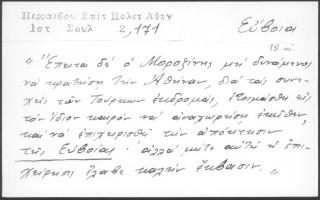 Περραιβου Επιτ Πολεμ Αθην
Ιστ Σουλ 2,171
Εὔβοια
18.
"Έπειτα δέ ὁ Μοροζίνης μή δυνάμενος
νά κρατήση τήν Ἀθήναν, διά τάς συνε-
χεῖς τῶν Τούρκων ἐκδρομάς, ἑτοιμάσθη εἰς
τόν ἴδιον καιρόν νά ἀναχωρήση ἐκεῖθεν,
καί νά ἐπιχειρισθῆ τήν ἀπόκτησιν
τῆς Εὐβοίας· ἀλλά μήτε αὐτή ἡ ἐπι-
χείρησις ἔλαβε καλήν ἔκβασιν."